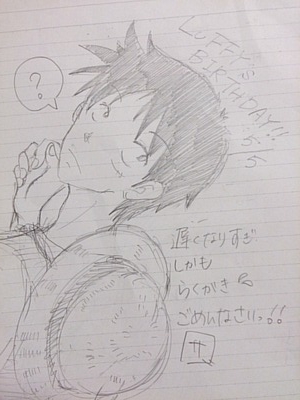 LUFFY'S
BIRTHDAY!!
5.5
?
遅くなりすぎ
しかも
らくがき
ごめんなさいっ!!
サ